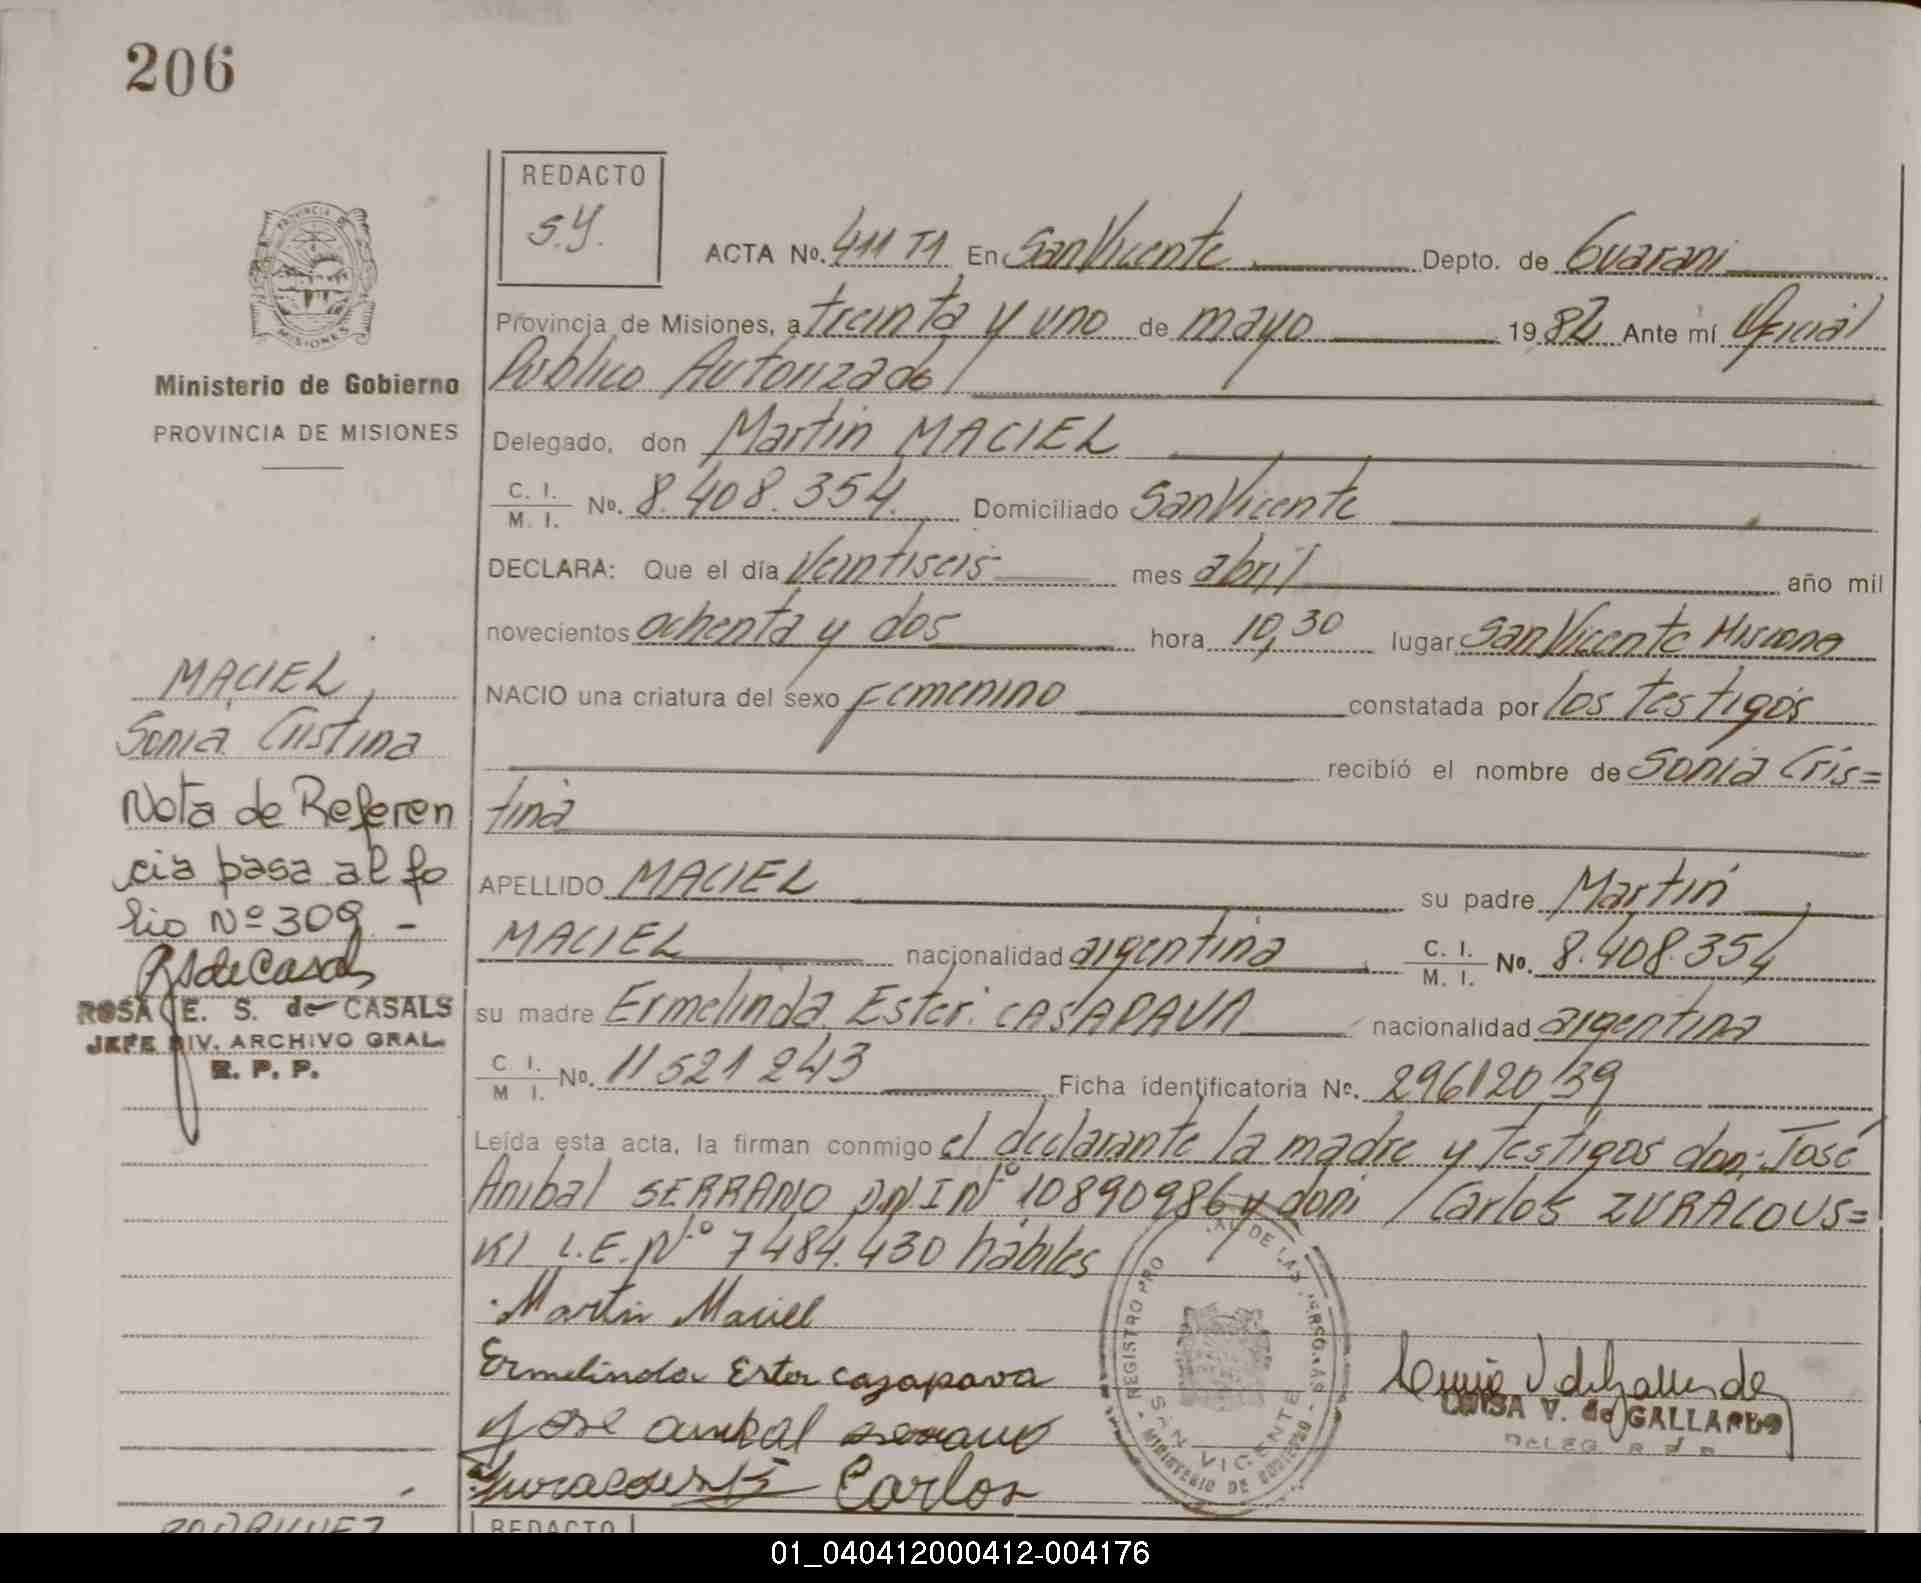 206
REDACTO
S.Y.
ACTA No. 411 T1 En San Vicente Depto. de Guarani
Provincia de Misiones, a treinta y uno de mayo 1982 Ante mí Oficial
Público Autorizado
Delegado, don Martin MACIEL
C. I.
M. I. No. 8.408.354. Domiciliado San Vicente
DECLARA: Que el día Veintiseis mes abril año mil
novecientos ochenta y dos hora 10,30 lugar San Vicente Misiones
NACIO una criatura del sexo Femenino constatada por los testigos
recibió el nombre de Sonia Cris=
tina
APELLIDO MACIEL su padre Martin
MACIEL nacionalidad argentina C. I. M. I. No. 8.408.354
su madre Ermelinda Ester CASAPAVA nacionalidad argentina
C I. M I. No. 11521243 Ficha identificatoria No. 296120/39
Leída esta acta, la firman conmigo el declarante la madre y testigos don: José
Anibal SERRANO D.N.I Nº 10890986 y don: Carlos ZURACOUS=
KI L.E. Nº 7484.430 hábiles
Martin Maciel
Ermelinda Ester casapava
Jose anibal serrano
Zuracouski Carlos
PROVINCIA DE
MISIONES
Ministerio de Gobierno
PROVINCIA DE MISIONES
MACIEL,
Sonia Cristina
Nota de Referen
cia pasa al fo
lio Nº 309 -
RSdeCasals
ROSA E. S. de CASALS
JEFE DIV. ARCHIVO GRAL.
R. P. P.
REGISTRO PRO DE LAS PERSONAS
SAN VICENTE
MINISTERIO DE GOBIERNO
Luisa V de Gallardo
LUISA V. de GALLARDO
DELEGADA
RODRIGUEZ
REDACTO
01_040412000412-004176